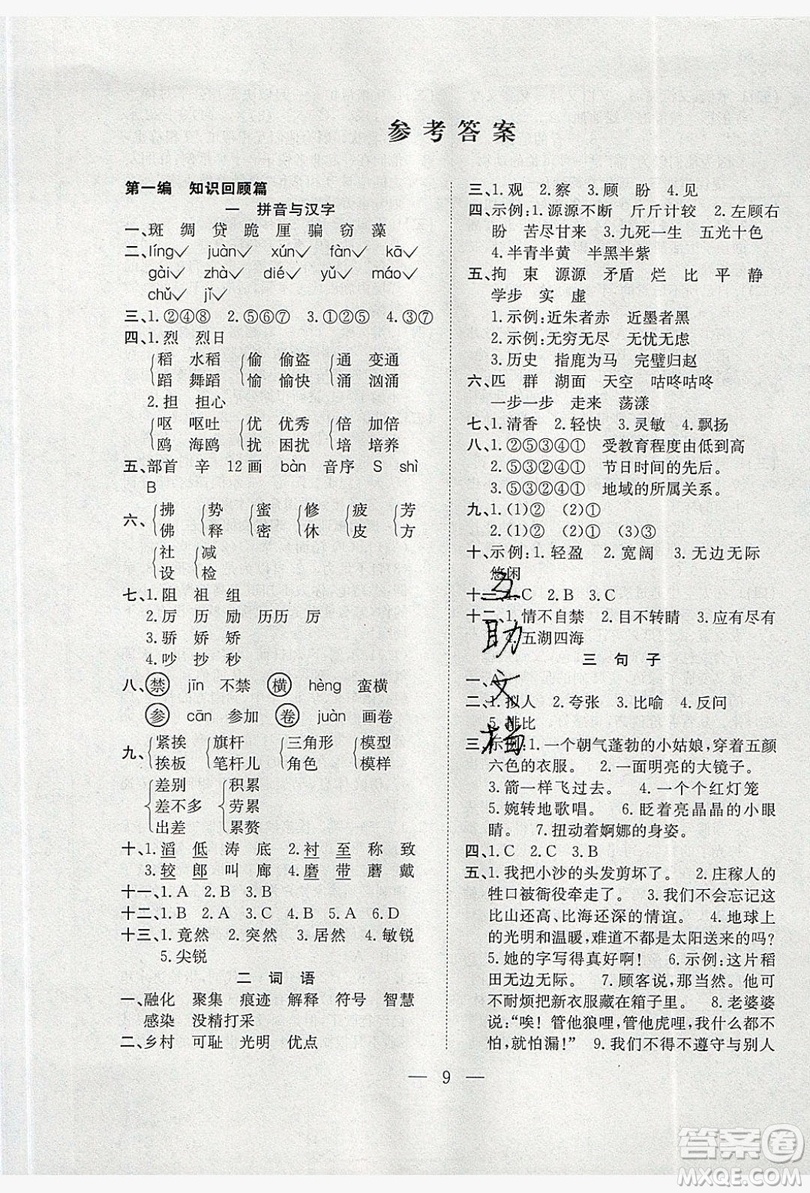 参考答案
第一编 知识回顾篇
一 拼音与汉字
一、斑 绸 贷 跪 厘 骗 窃 藻
二、líng✓ juàn✓ xún✓ fàn✓ kā✓
gài✓ zhà✓ yú✓ xì✓ máo✓
chǔ✓ jǐ✓
三、1.②④⑧ 2.⑤⑥⑦ 3.①③④⑤⑥⑦
四、1.烈 烈日
稻 水稻 偷 偷盗 通 变通
蹈 舞蹈 愉 愉快 涌 汹涌
2.担 担心
呕 呕吐 优 优秀 倍 加倍
鸥 海鸥 扰 困扰 培 培养
五、部首 辛 12画 bàn 音序 S shì
B
六、拂 势 蜜 修 疲 芳
佛 释 密 休 皮 方
社 减
设 检
七、1.阻 祖 组
2.厉 历 励 历历 厉
3.骄 娇 矫
4.吵 抄 秒
八、禁 jīn 不禁 横 hèng 蛮横
参 cān 参加 卷 juàn 画卷
九、紧挨 旗杆 三角形 模型
挨板 笔杆儿 角色 模样
差别 积累
差不多 劳累
出差 累赘
十、1.滔 低 涛 底 2.衬 至 称 致
3.较 郎 叫 廊 4.磨 带 蘑 戴
十一、1.A 2.B 3.B
十二、1.B 2.B 3.C 4.B 5.A 6.D
十三、1.竟然 2.突然 3.居然 4.敏锐
5.尖锐
二 词语
一、融化 聚集 痕迹 讲解 符号 智慧
感染 没精打采
二、乡村 可耻 光明 优点
三、1.观 2.察 3.顾 盼 4.见
四、示例:1.源源不断 斤斤计较 2.左顾右
盼 苦尽甘来 3.九死一生 五光十色
4.半青半黄 半黑半紫
五、拘 束 源源 矛盾 烂 比 平 静
学步 实 虚
1.示例:近朱者赤 近墨者黑
2.示例:无穷无尽 无忧无虑
3.历史 指鹿为马 完璧归赵
六、匹 群 湖面 天空 咕咚咕咚
一步一步 走来 荡漾
七、1.清香 2.轻快 3.灵敏 4.飘扬
八、1.②⑤③④① 受教育程度由低到高
2.②⑤③④① 节日时间的先后。
3.⑤③④②① 地域的所属关系。
九、1.(1)② (2)①
2.(1)② (2)① (3)③
十、示例:1.轻盈 2.宽阔 3.无边无际
悠闲
十一、1.C 2.B 3.C
十二、1.情不自禁 2.目不转睛 3.应有尽有
4.五湖四海
三 句子
一、
二、1.拟人 2.夸张 3.比喻 4.反问
5.排比
三、示例:1.一个朝气蓬勃的小姑娘,穿着五颜
六色的衣服。 2.一面明亮的大镜子。
3.箭一样飞驰 4.一个个红灯笼
5.婉转地歌唱。 6.眨着亮晶晶的小眼
睛。 7.扭动着婀娜的身姿。
四、1.C 2.B 3.C
五、1.我把小沙的头发剪坏了。 2.庄稼人的
牲口被衙役牵走了。 3.我们不会忘记这
比山还高、比海还深的情谊。 4.地球上
的光明和温暖,难道不是太阳送来的吗?
5.她的字写得真好啊! 6.示例:这片稻
田无边无际。 7.顾客说,那当然。他可
不耐烦把新衣服藏在箱子里。 8.老婆婆
说:“唉! 管他狼哩,管他虎哩,我什么都不
怕,就怕漏!” 9.我们不得不遵守与别人
互助文档
— 9 —
答案圈
MXQE.COM